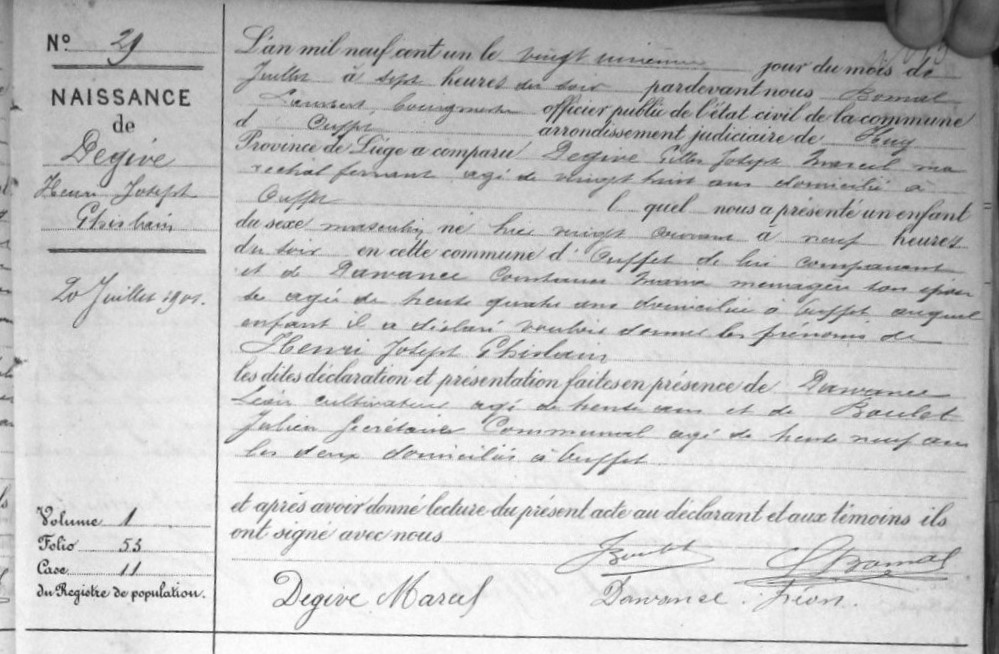 N° 29
NAISSANCE
de
Degive
Henri Joseph
Ghislain
20 Juillet 1901.
Volume 1
Folio 53
Case 11
du Registre de population.
L'an mil neuf cent un le vingt unième jour du mois de
Juillet à sept heures du soir pardevant nous Bomal
Lambert, bourgmestre officier public de l'état civil de la commune
d' Ouffet arrondissement judiciaire de Huy
Province de Liège a comparu Degive Joseph Marcel ma
rechal ferrant agé de vingt huit ans domicilié à
Ouffet l quel nous a présenté un enfant
du sexe masculin né hier vingt courant à neuf heures
du soir en cette commune d' Ouffet de lui comparant
et de Dawance Constance Maria menagère son epou
se agée de trente quatre ans domiciliée à Ouffet auquel
enfant il a déclaré vouloir donner les prénoms de
Henri Joseph Ghislain
les dites déclaration et présentation faites en présence de Dawance
Léon cultivateur agé de trente ans et de Boulet
Julien Secrétaire Communal agé de trente neuf ans
les deux domiciliés à Ouffet
et après avoir donné lecture du présent acte au déclarant et aux témoins ils
ont signé avec nous
JBoulet LBomal
Degive Marcel Dawance Léon.